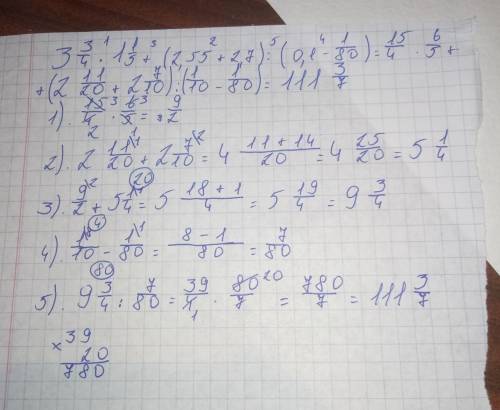 3 3/4 · 1 1/5 + (2,55 + 2,7) : (0,1 - 1/80) = 15/4 · 6/5 +
+ (2 11/20 + 2 7/10) : (1/10 - 1/80) = 111 3/7
1). 15/4 · 6/5 = 9/2
2). 2 11/20 + 2 7/10 = 4 (11 + 14)/20 = 4 25/20 = 5 1/4
3). 9/2 + 5 1/4 = 5 (18 + 1)/4 = 5 19/4 = 9 3/4
4). 1/10 - 1/80 = (8 - 1)/80 = 7/80
5). 9 3/4 : 7/80 = 39/4 · 80/7 = 780/7 = 111 3/7
× 39
20
780